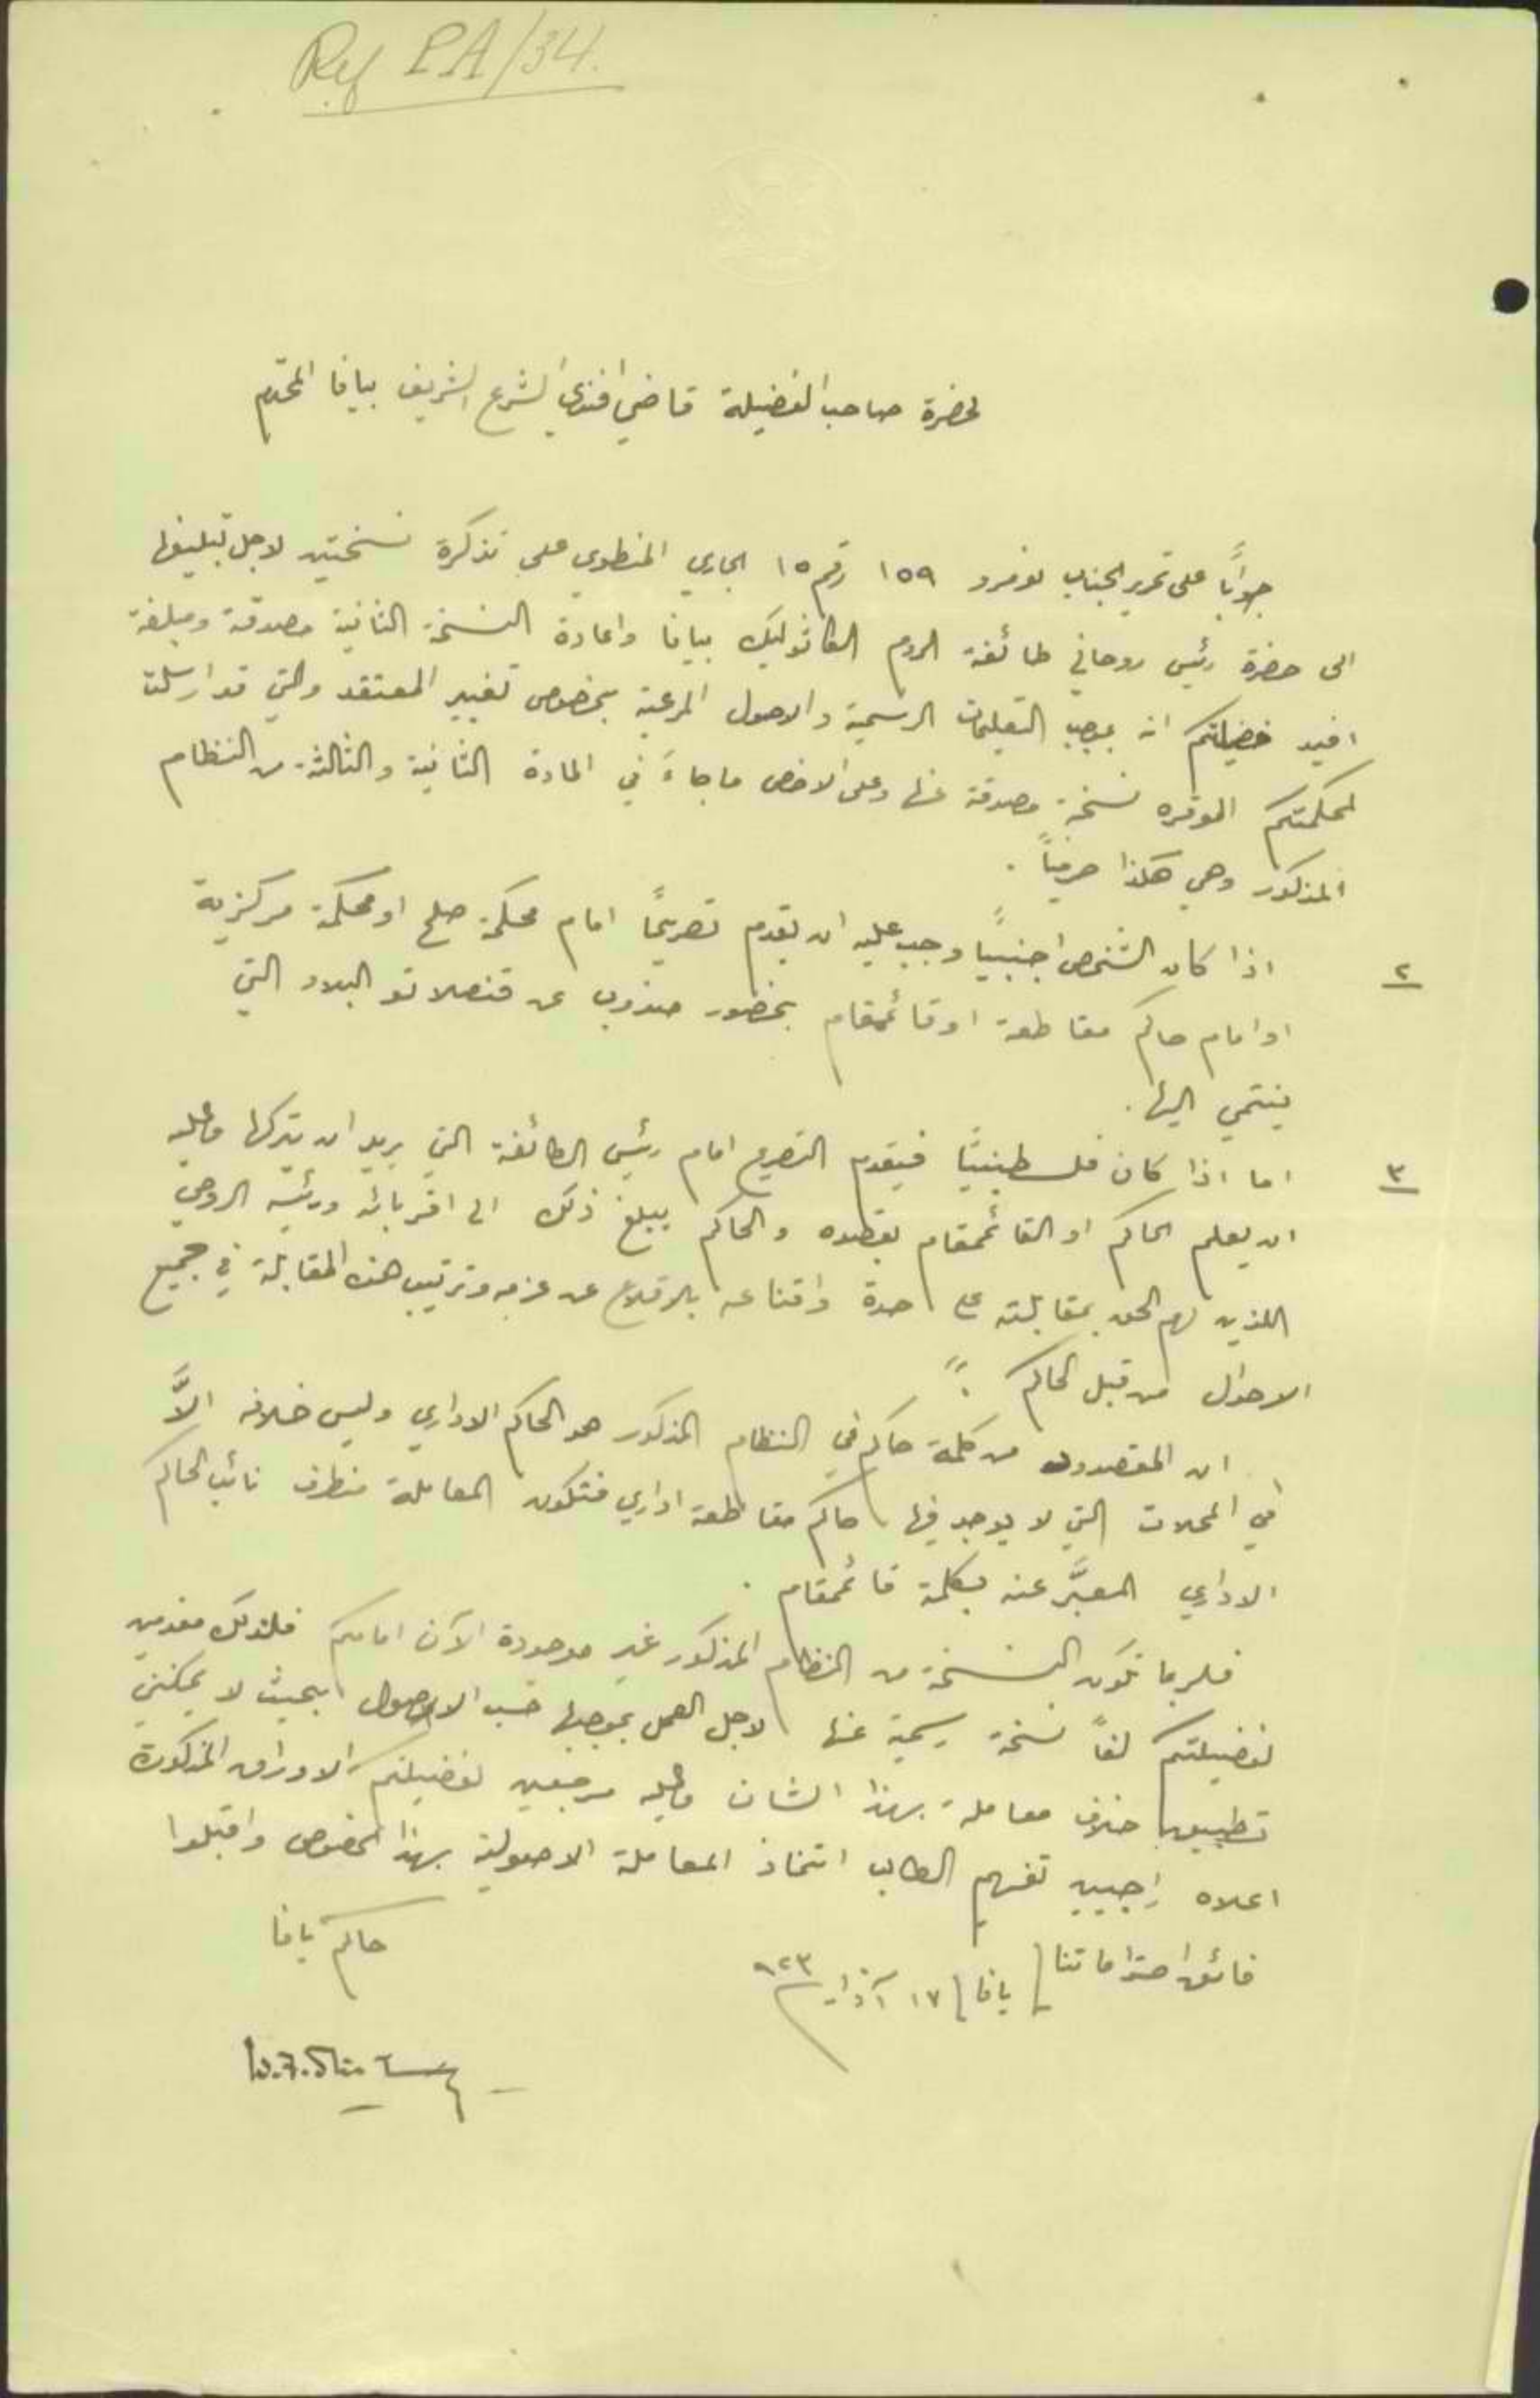 Ref PA/34.
لحضرة صاحب الفضيلة قاضي افندي الشرع الشريف بيافا المحترم
جواباً على تحرير الجناب نومرو ١٥٩ رقم ١٥ الجاري المنطوي على تذكرة نسختين لاجل تبليغها
الى حضرة رئيس روحاني طائفة الروم الكاثوليك بيافا واعادة النسخة الثانية مصدقة ومبلغة
افيد فضيلتكم انه بموجب التعليمات الرسمية والاصول المرعية بخصوص تغيير المعتقد والتي قد ارسلت
لمحكمتكم الموقره نسخة مصدقة عنها وعلى الاخص ما جاء في المادة الثانية والثالثة من النظام
المذكور وهي هكذا حرفياً .
٢ اذا كان الشخص اجنبياً وجب عليه ان يقدم تصريحاً امام محكمة صلح او محكمة مركزية
او امام حاكم مقاطعة او قائمقام بحضور مندوب عن قنصلاتو البلاد التي
ينتمي اليها .
٣ اما اذا كان فلسطينياً فيقدم التصريح امام رئيس الطائفة التي يريد ان يتركها وعليه
ان يعلم الحاكم او القائمقام بقصده والحاكم يبلغ ذلك الى اقربائه ورئيسه الروحي
اللذين لهم الحق بمقابلته على حدة واقناعه بالاقلاع عن عزمه وترتيب هذه المقابلة في جميع
الاحوال من قبل الحاكم . "
ان المقصود من كلمة حاكم في النظام المذكور هو الحاكم الاداري وليس خلافه الاَّ
في المحلات التي لا يوجد فيها حاكم مقاطعة اداري فتكون المعاملة منطرف نائب الحاكم
الاداري المعبَّر عنه بكلمة قائمقام .
فلربما تكون النسخة من النظام المذكور غير موجودة الآن امامكم فلذلك مقدمين
لفضيلتكم لفاً نسخة رسمية عنها لاجل العمل بموجبها حسب الاصول بحيث لا يمكنني
تطبيق خلاف معاملة بهذا الشان وعليه مرجعين لفضيلتكم الاوراق المذكورة
اعلاه راجيين تفهيم الطالب اتخاذ المعاملة الاصولية بهذا الخصوص واقبلوا
فائق احتراماتنا يافا ١٧ آذار ٩٢٣
حاكم يافا